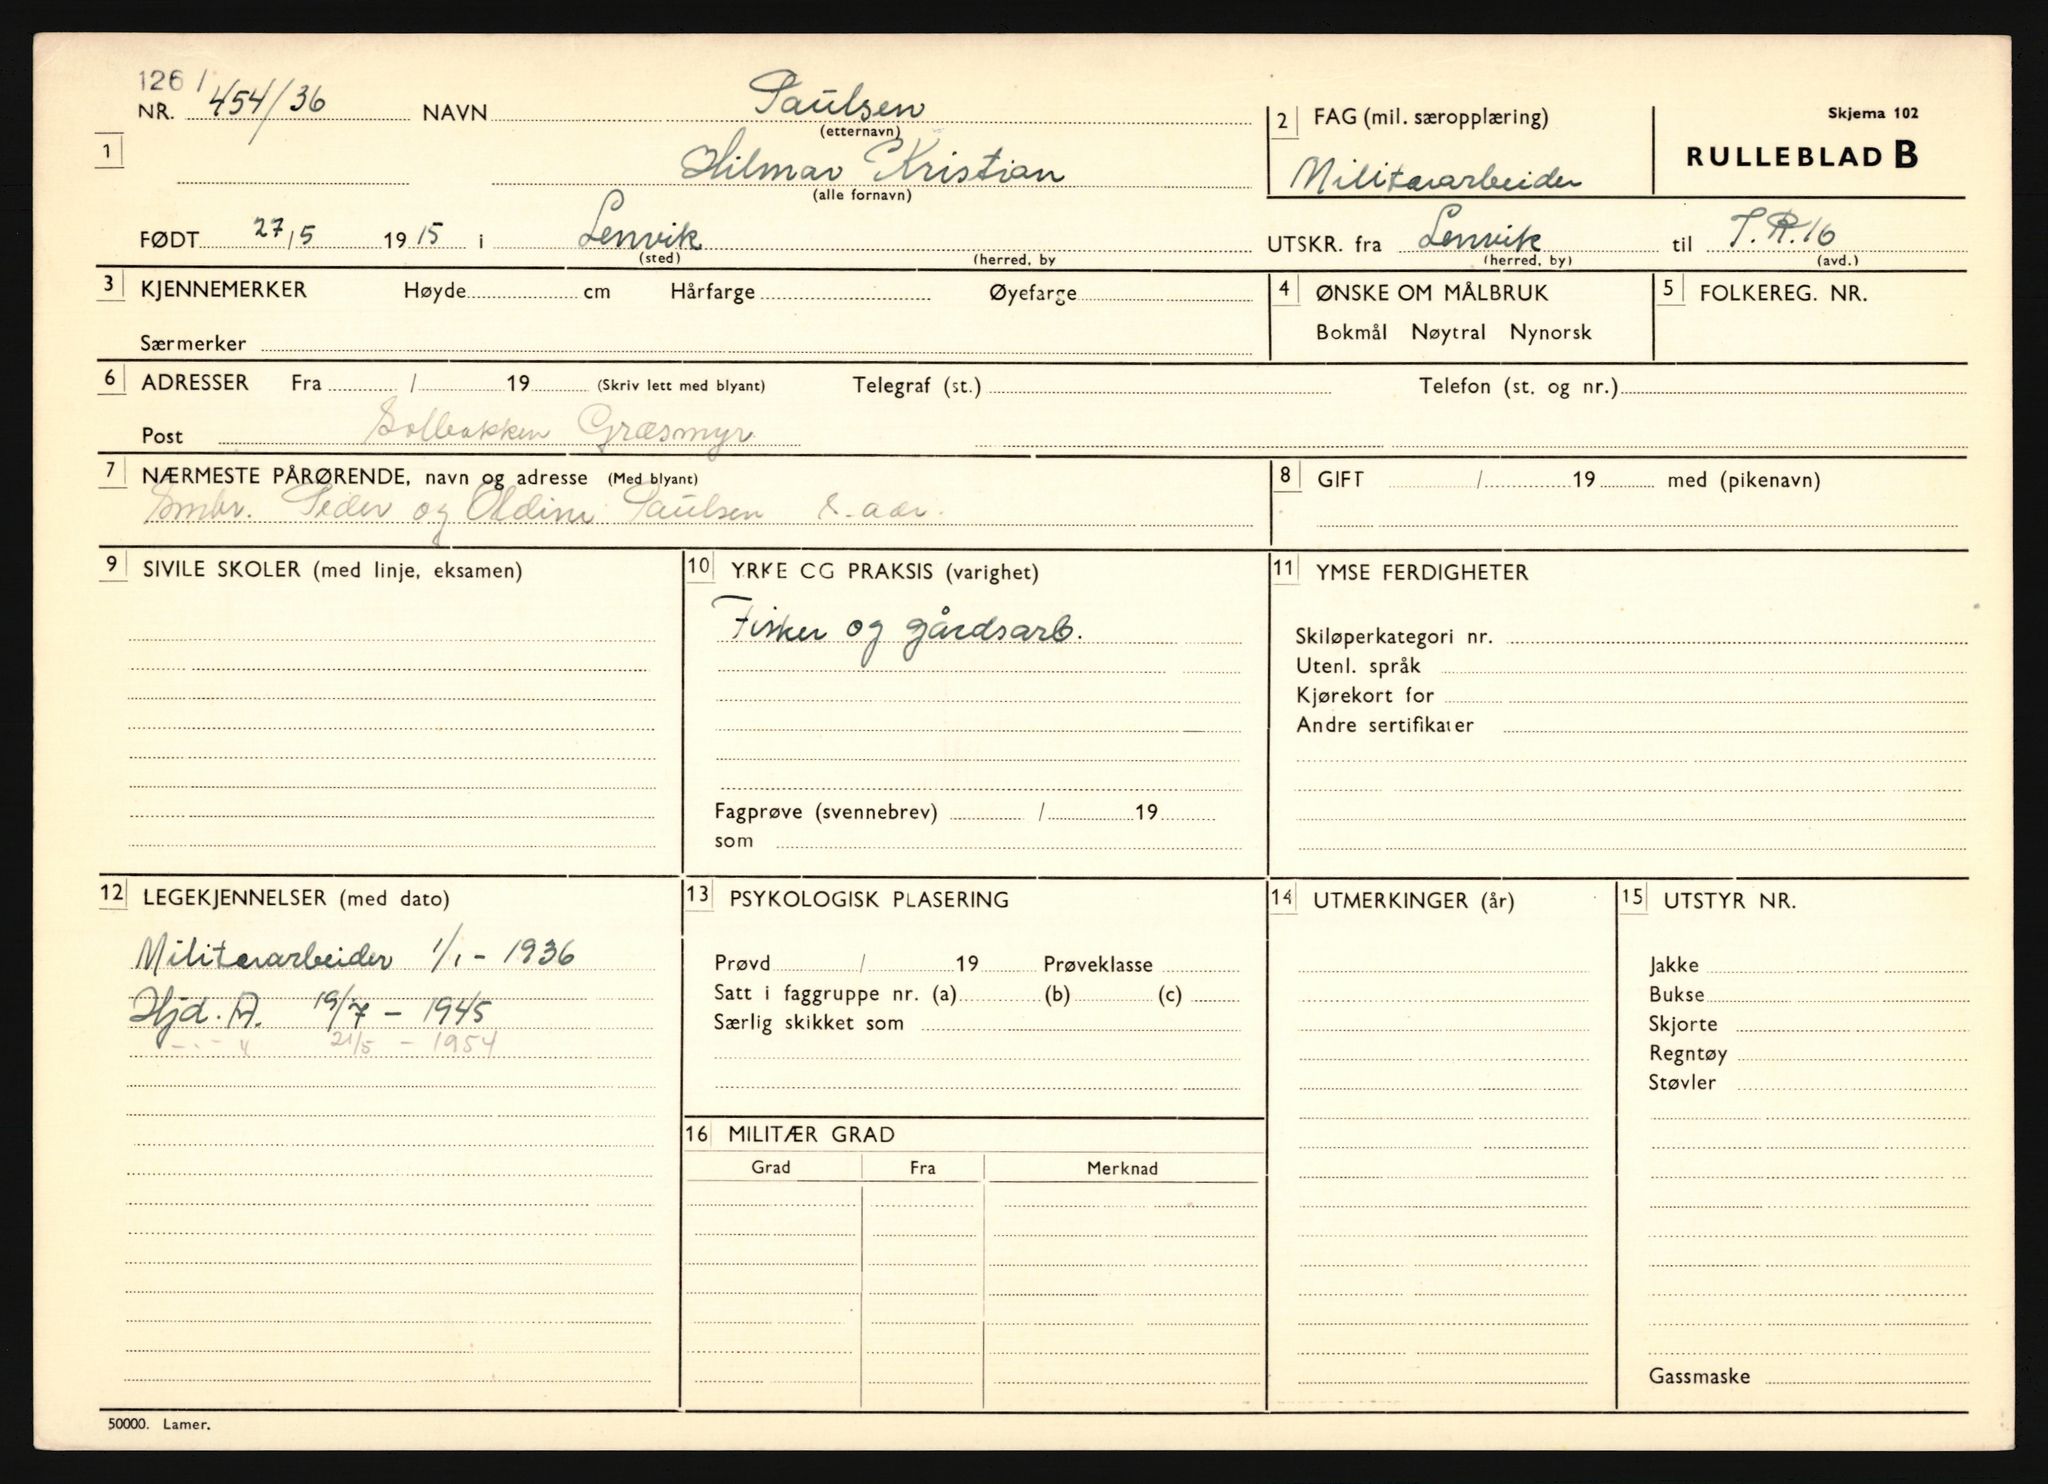 126 /
NR. 454/36 NAVN Paulsen
(etternavn)
1 Hilmar Kristian
(alle fornavn)
2 FAG (mil. særopplæring)
Militærarbeider
Skjema 102
RULLEBLAD B
FØDT 27/5 1915 i Lenvik
(sted) (herred, by
UTSKR. fra Lenvik til I.R.16
(herred, by) (avd.)
3 KJENNEMERKER Høyde cm Hårfarge Øyefarge
Særmerker
4 ØNSKE OM MÅLBRUK
Bokmål Nøytral Nynorsk
5 FOLKEREG. NR.
6 ADRESSER Fra / 19 (Skriv lett med blyant) Telegraf (st.) Telefon (st. og nr.)
Post Solbakken Græsmyr
7 NÆRMESTE PÅRØRENDE, navn og adresse (Med blyant)
Småbr. Peder og Oldine Paulsen s. adr.
8 GIFT / 19 med (pikenavn)
9 SIVILE SKOLER (med linje, eksamen)
10 YRKE CG PRAKSIS (varighet)
Fisker og gårdsarb.
Fagprøve (svennebrev) / 19
som
11 YMSE FERDIGHETER
Skiløperkategori nr.
Utenl. språk
Kjørekort for
Andre sertifikater
12 LEGEKJENNELSER (med dato)
Militærarbeider 1/1 - 1936
Hjd. A. 19/7 - 1945
— . — " 21/5 - 1954
13 PSYKOLOGISK PLASERING
Prøvd / 19 Prøveklasse
Satt i faggruppe nr. (a) (b) (c)
Særlig skikket som
14 UTMERKINGER (år)
15 UTSTYR NR.
Jakke
Bukse
Skjorte
Regntøy
Støvler
Gassmaske
16 MILITÆR GRAD
Grad Fra Merknad
50000. Lamer.